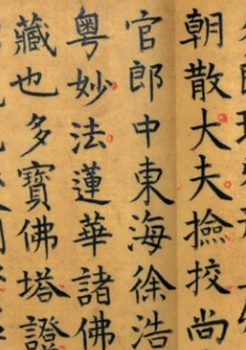 朝散大夫撿挍尚
官郎中東海徐浩
粵妙法蓮華諸佛
藏也多寶佛塔證